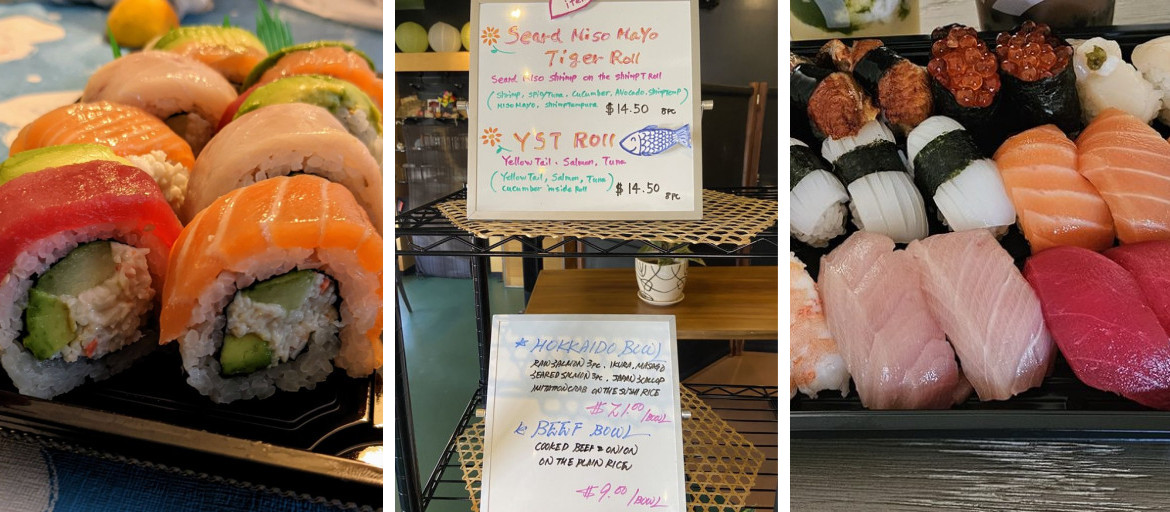 item
Seard Miso Mayo
Tiger Roll
Seard Miso shrimp on the shrimp T Roll
(Shrimp, Spicy Tuna, Cucumber, Avocado, Shrimp temp)
Miso Mayo, shrimp tempura
$14.50 8pc
YST Roll
Yellow Tail, Salmon, Tuna
(Yellow Tail, Salmon, Tuna)
cucumber inside Roll
$14.50
8pc
* HOKKAIDO BOWL
RAW SALMON 3PC, IKURA, MASAGO
SEARED SALMON 3PC, JAPAN SCALLOP
IMITATION CRAB ON THE SUSHI RICE
$21.00/BOWL
* BEEF BOWL
COOKED BEEF & ONION
ON THE PLAIN RICE
$9.00/BOWL